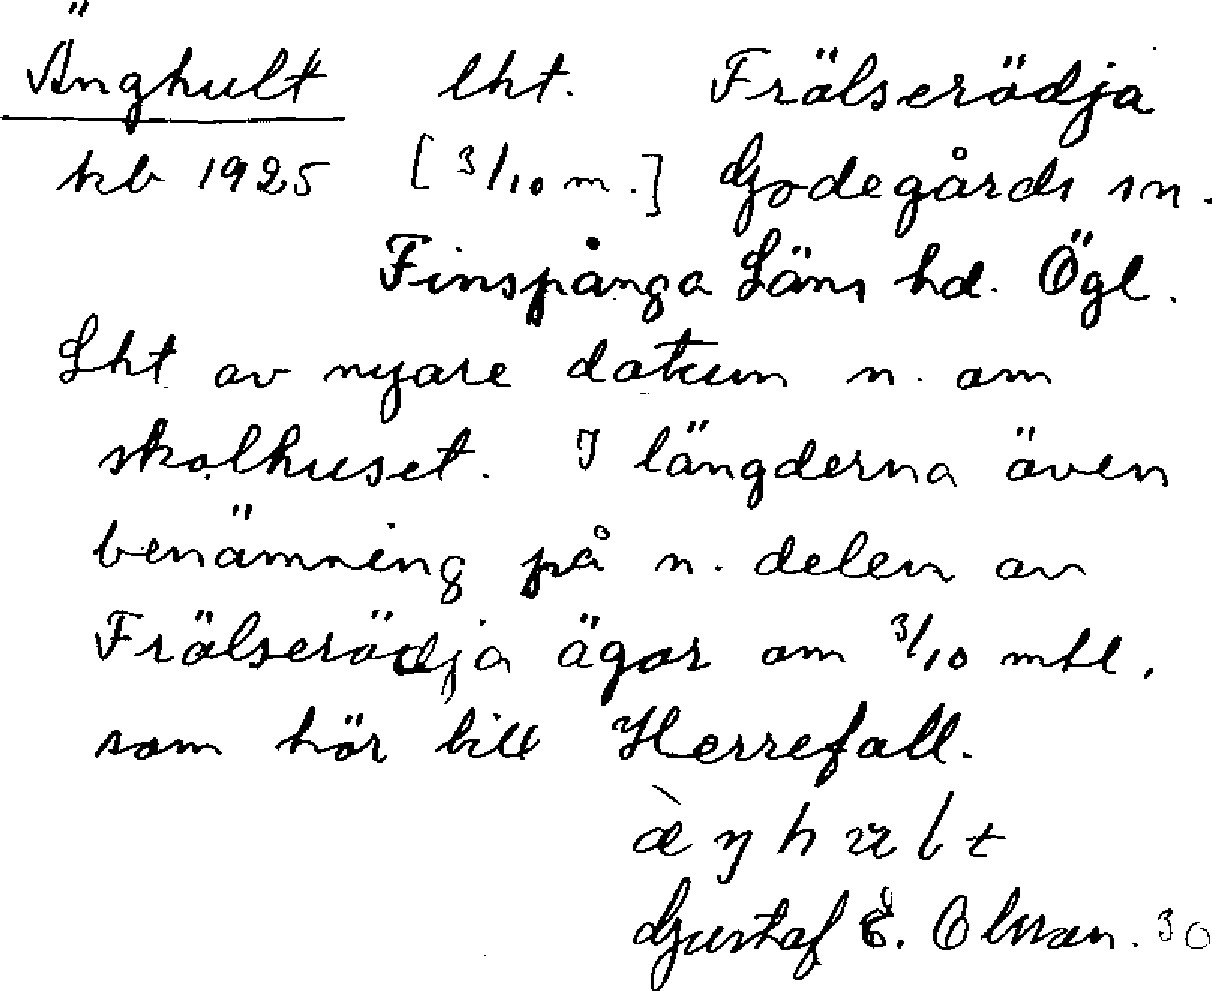 Änghult lht. Frälserödja
kb 1925 [3/10 m.] Godegårds sn.
Finspånga Läns hd. Ögl.
Lht av nyare datum n. om
skolhuset. I längderna även
benämning på n. delen av
Frälserödja ägor om 3/10 mtl,
som hör till Herrefall.
Gustaf E. Olsson. 30